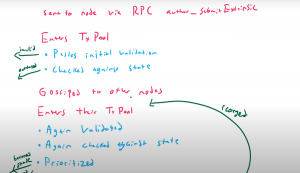 sent to node via RPC author_submitExtrinsic
Enters Tx Pool
invalid
• Passes initial validation
outdated
• Checked against state
Gossiped to other nodes
Enters their Tx Pool
(cargo)
• Again Validated
• Again checked against state
banned
• Prioritized